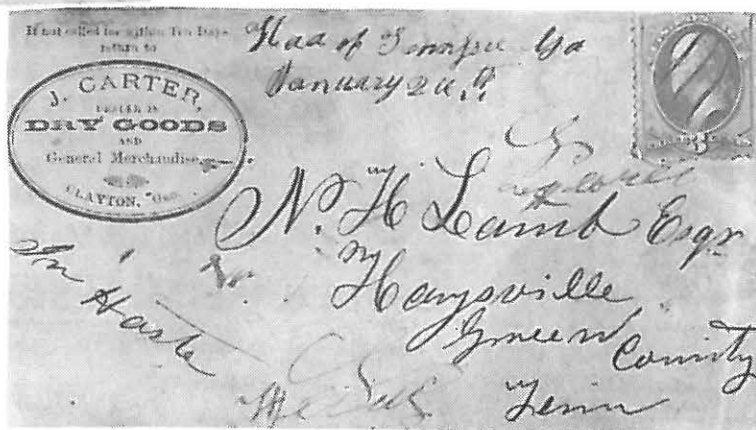 If not called for within Ten Days
return to
J. CARTER,
DEALER IN
DRY GOODS
AND
General Merchandise,
CLAYTON, Geo.
Head of Tennessee Ga
January 20th
3
N. H. Lamb Esqr
Haysville
Green County
Tenn
In Haste